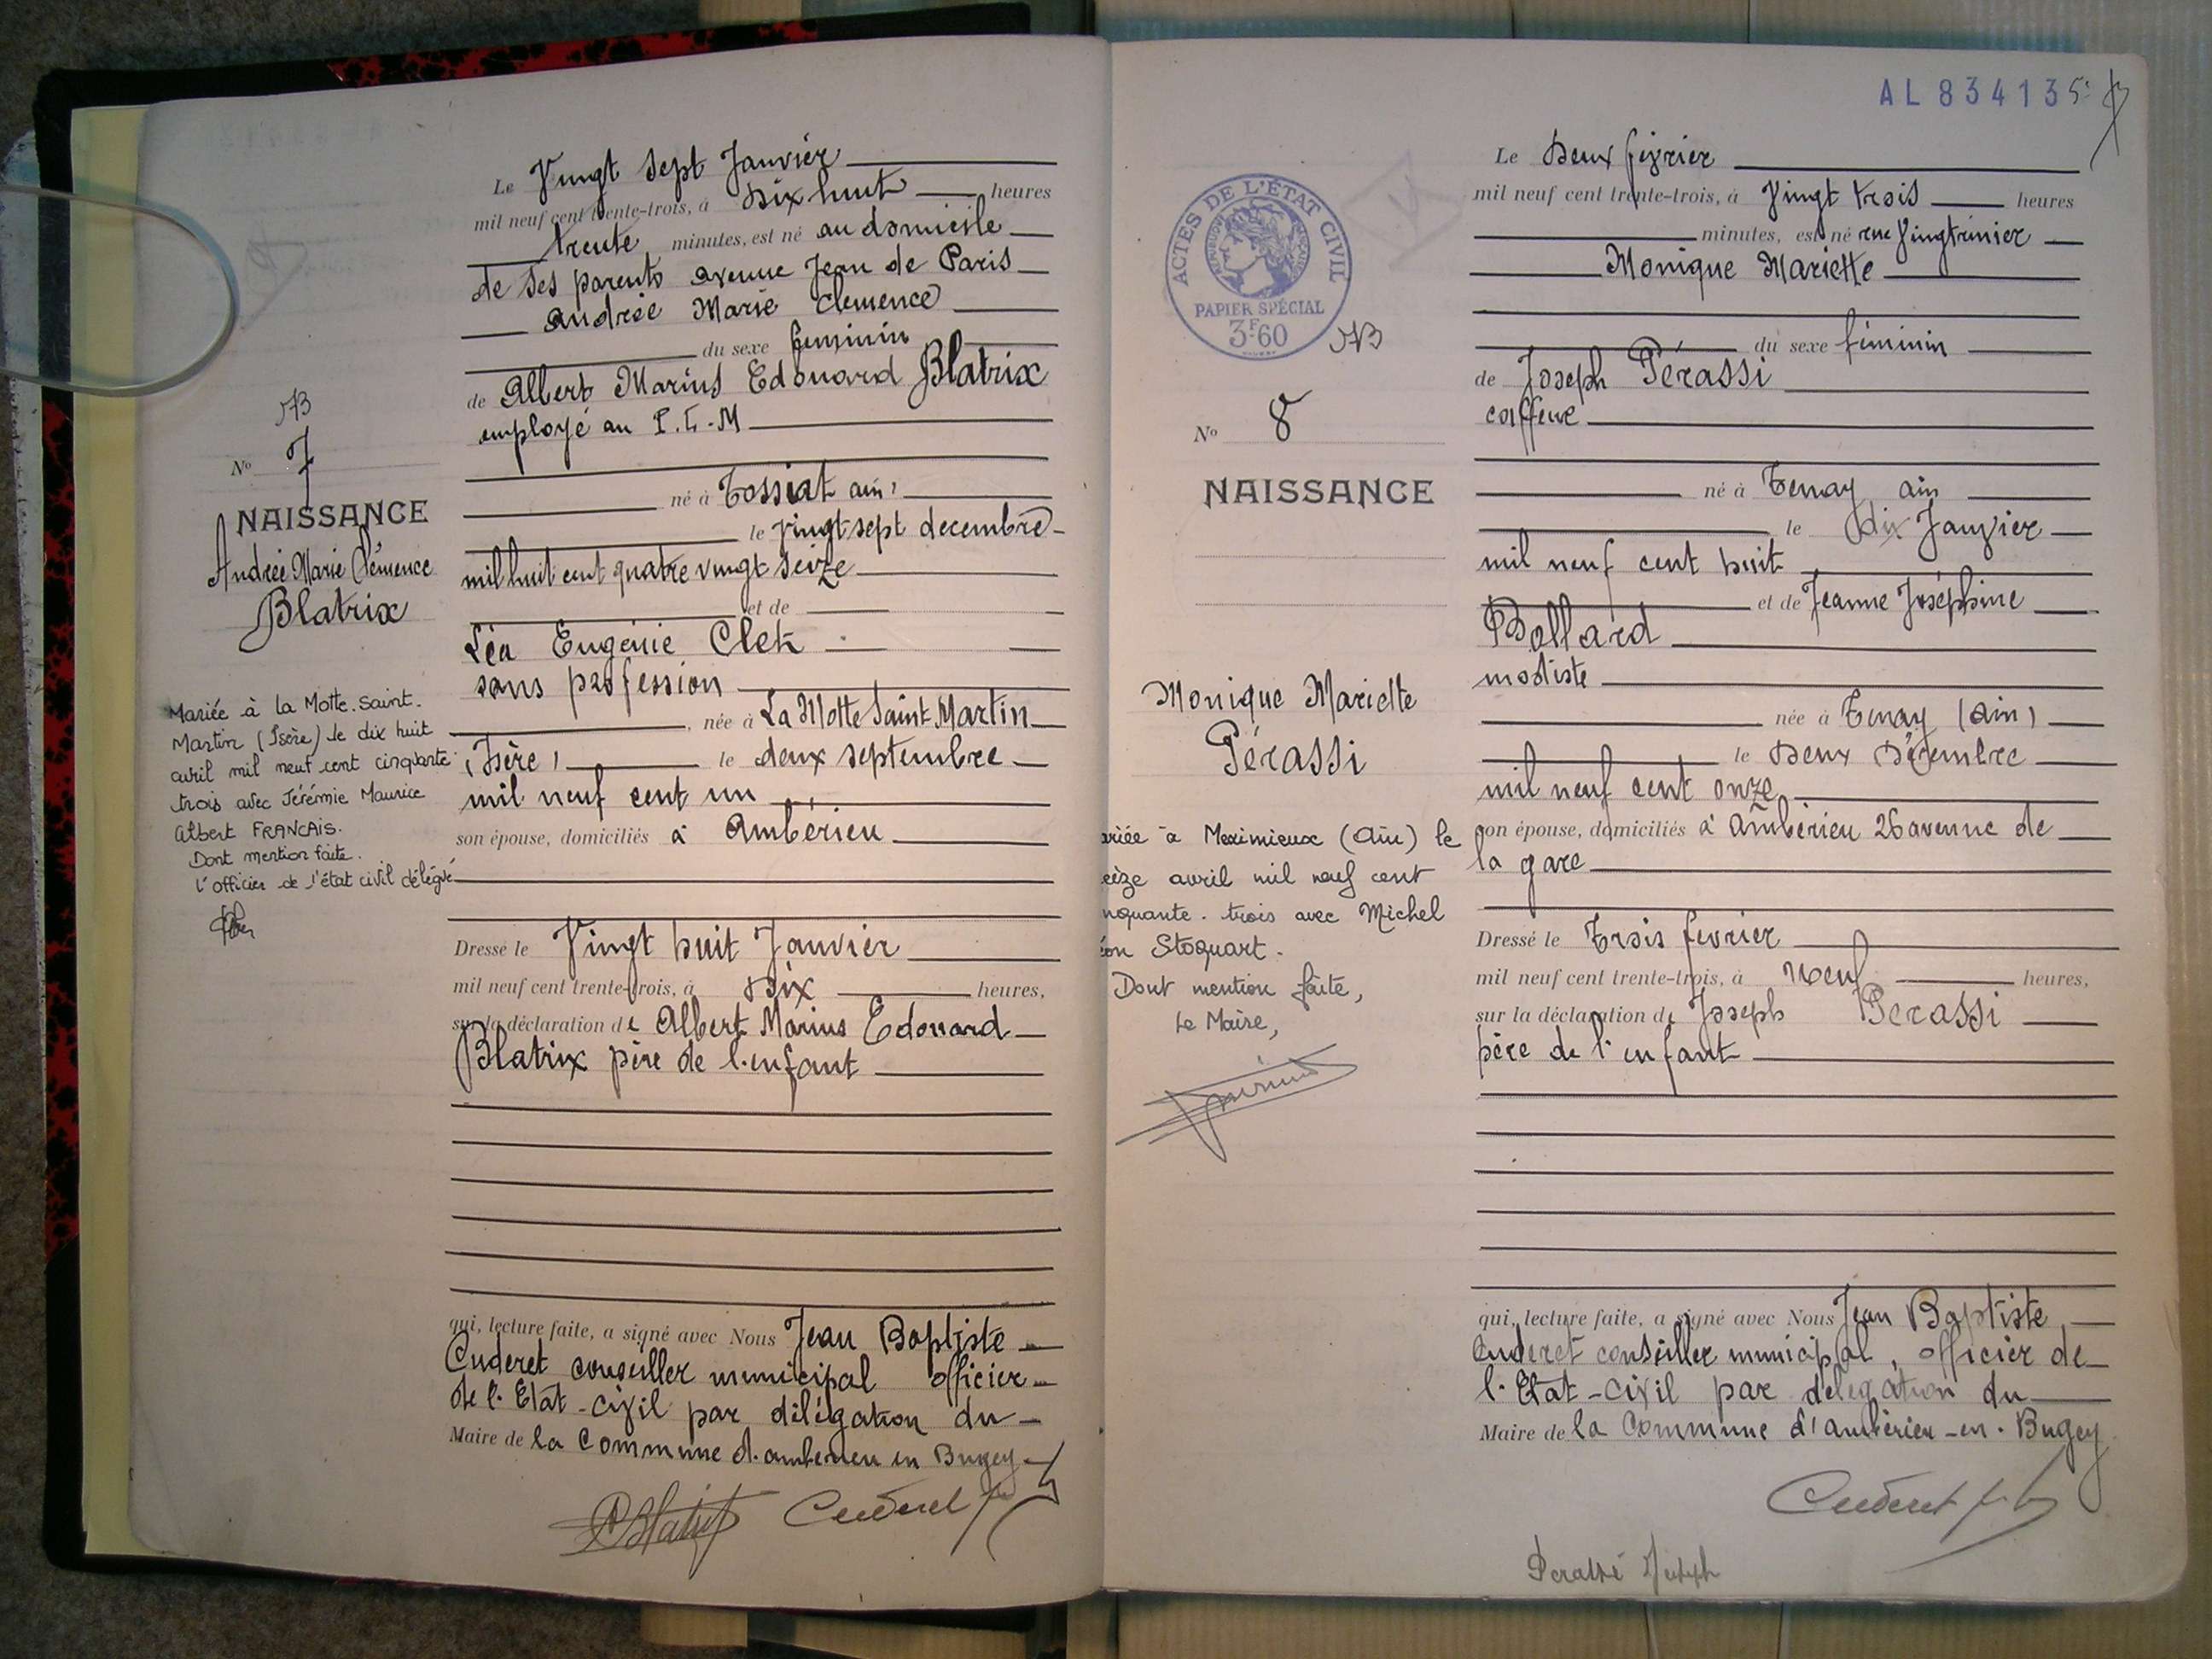 Le Vingt sept Janvier
mil neuf cent trente-trois, à Dix huit heures
trente minutes, est né au domicile
de ses parents avenue Jean de Paris
Andrée Marie Clemence
du sexe feminin
de Albert Marius Edouard Blatrix
employé au P.L.M
né à Tossiat ain)
le vingt sept decembre
mil huit cent quatre vingt seize
et de
Léa Eugénie Clet
sans profession
, née à La Motte Saint Martin
(Isère) le deux septembre
mil neuf cent un
son épouse, domiciliés à Ambérieu
Dressé le Vingt huit Janvier
mil neuf cent trente-trois, à Dix heures,
sur la déclaration de Albert Marius Edouard
Blatrix père de l'enfant
qui, lecture faite, a signé avec Nous Jean Baptiste
Cuderet conseiller municipal officier
de l'Etat-civil par délégation du
Maire de la Commune d'amberieu en Bugey
Cuderet
No 7
NAISSANCE
Andrée Marie Clémence
Blatrix
Mariée à la Motte-Saint-
Martin (Isère) le dix huit
avril mil neuf cent cinquante
trois avec Jérémie Maurice
Albert FRANCAIS.
Dont mention faite.
l'officier de l'état civil délégué
AL 834135
ACTES DE L'ÉTAT CIVIL
RÉPUBLIQUE FRANÇAISE
PAPIER SPÉCIAL
3F60
No 8
NAISSANCE
Monique Mariette
Pérassi
ariée à Meximieux (Ain) le
eize avril mil neuf cent
nquante-trois avec Michel
éon Stoquart.
Dont mention faite,
Le Maire,
Le Deux février
mil neuf cent trente-trois, à Vingt trois heures
minutes, est né rue Vingtrinier
Monique Mariette
du sexe féminin
de Joseph Pérassi
coiffeur
né à Tenay ain
le dix Janvier
mil neuf cent huit
et de Jeanne Joséphine
Bollard
modiste
née à Tenay (ain)
le Deux Décembre
mil neuf cent onze
son épouse, domiciliés à Ambérieu 26 avenue de
la gare
Dressé le Trois fevrier
mil neuf cent trente-trois, à Neuf heures,
sur la déclaration de Joseph Perassi
père de l'enfant
qui, lecture faite, a signé avec Nous Jean Baptiste
Cuderet conseiller municipal, officier de
l'Etat-civil par delegation du
Maire de la Commune d'ambérieu-en-Bugey
Cuderet
Perassi Joseph